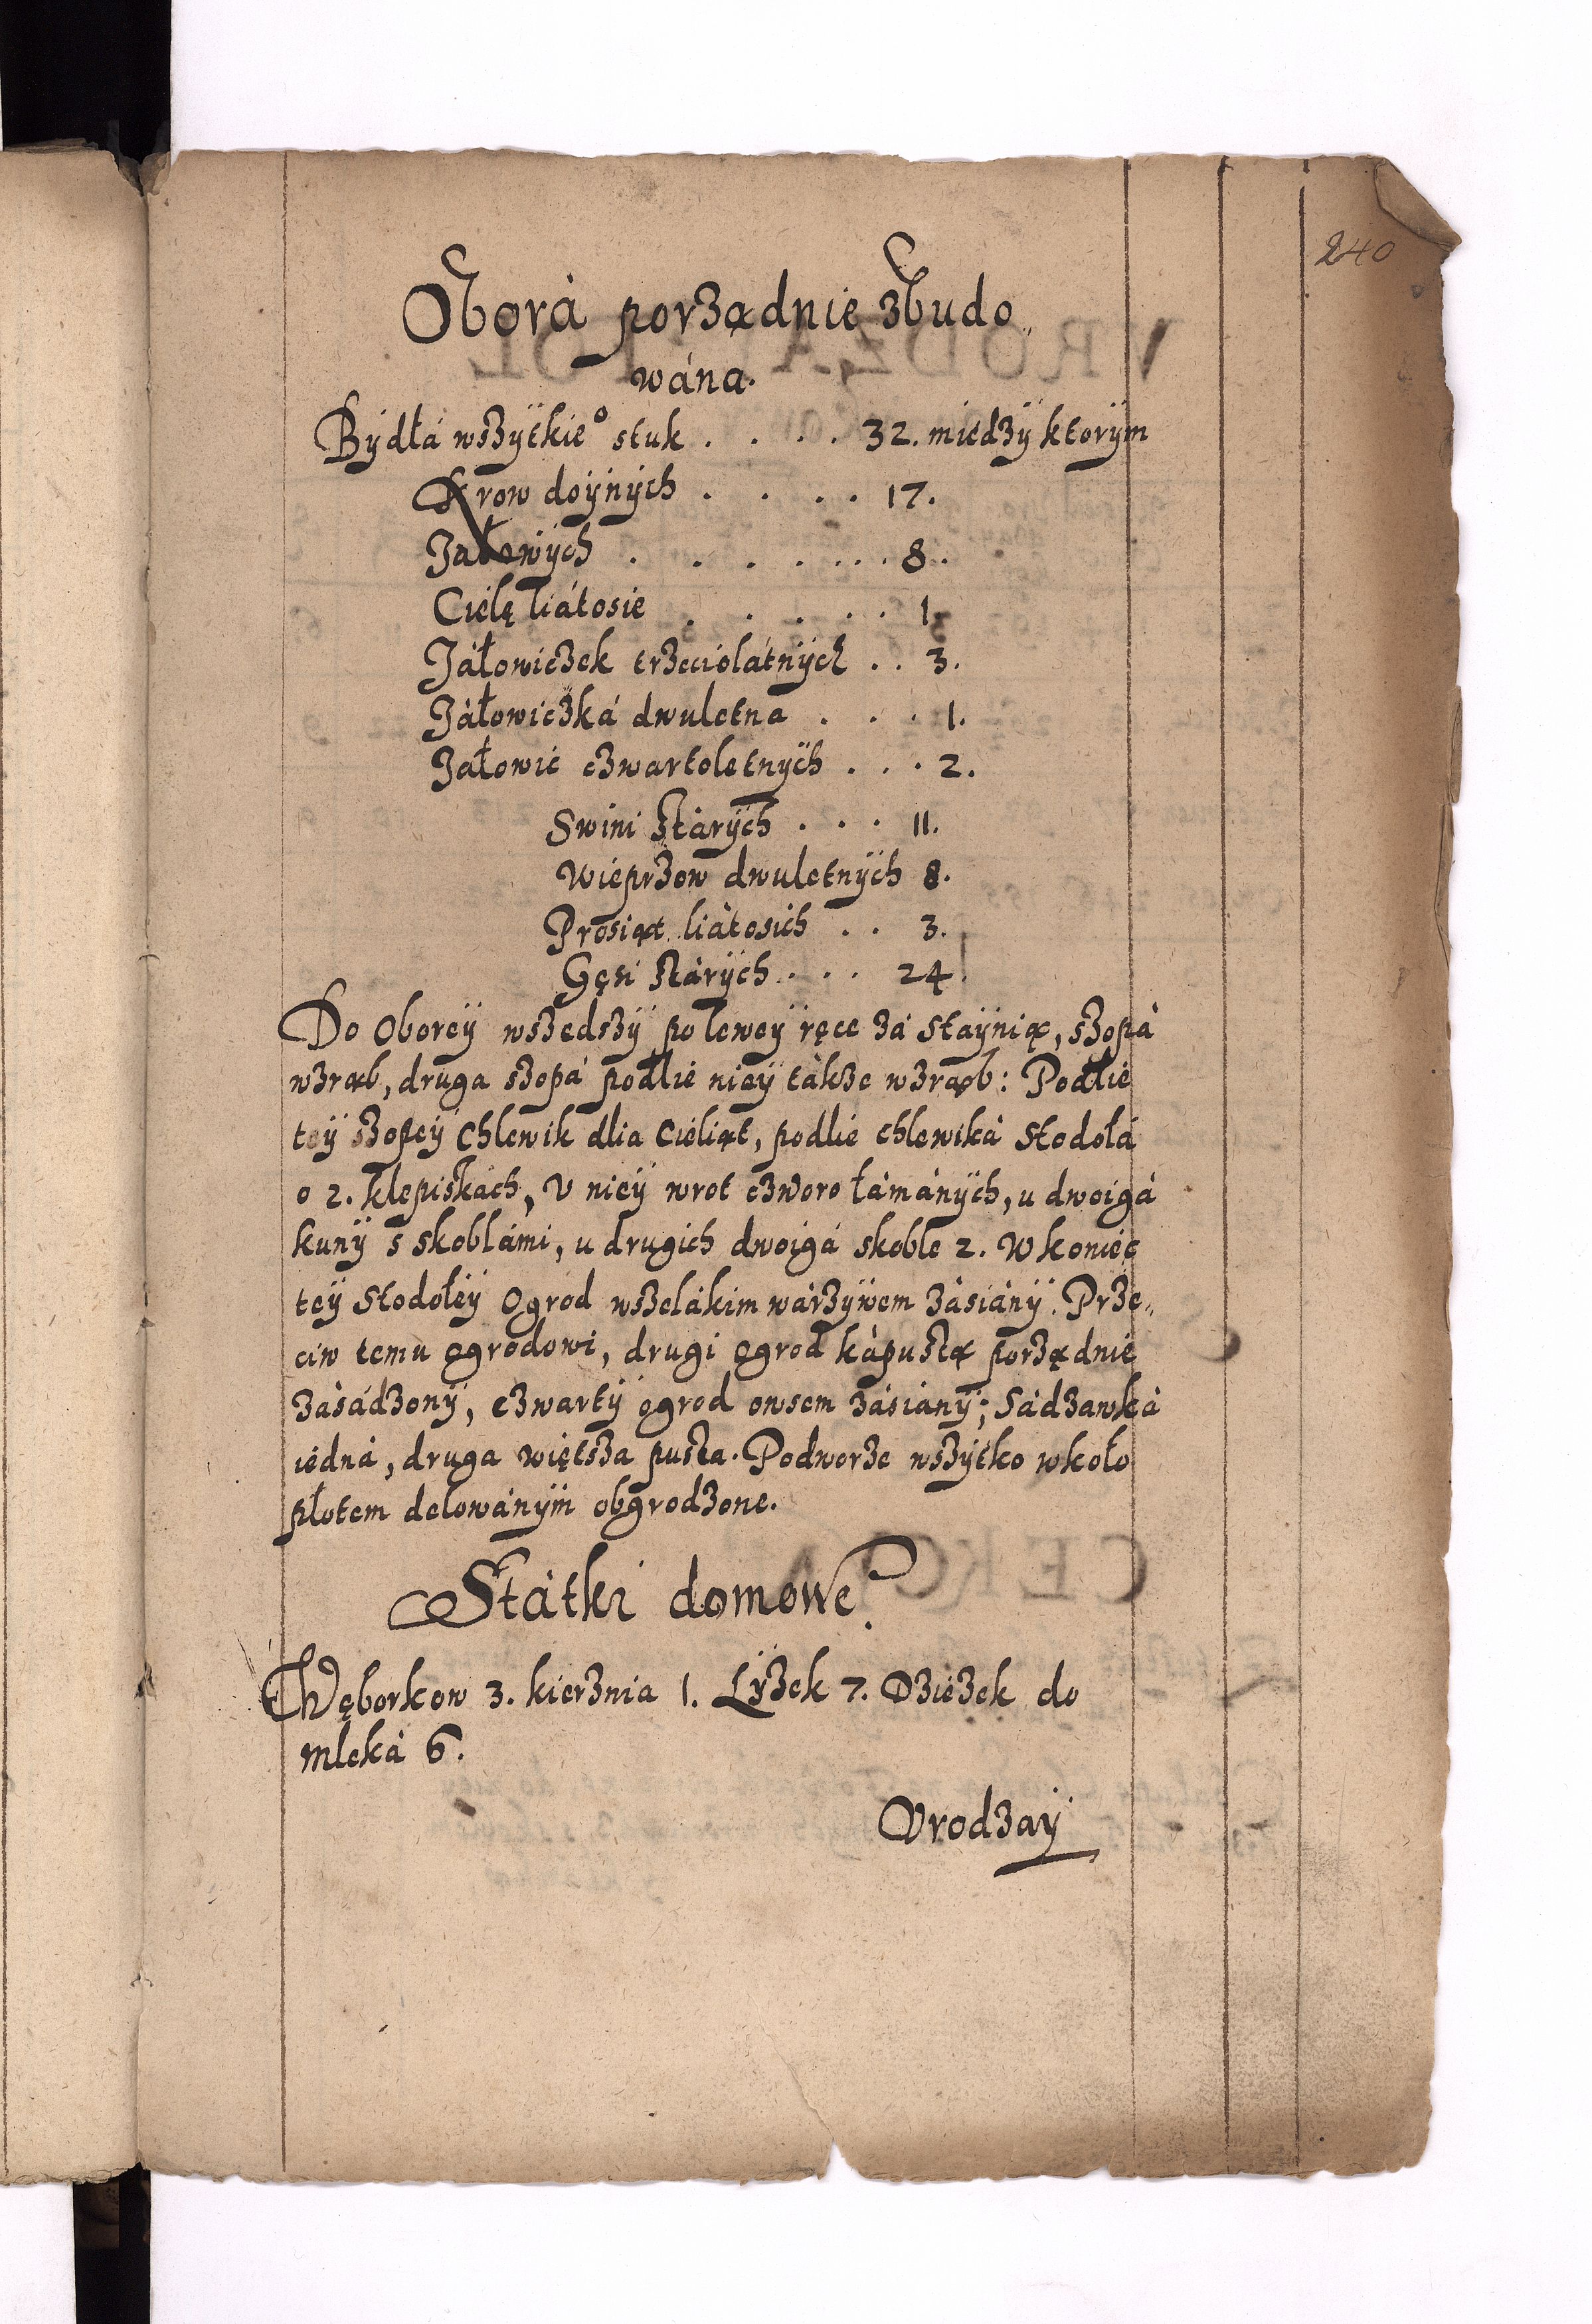 240
Oborá porządnie zbudo„
wána.
Bÿdłá wszÿtkie° stuk . . . . 32. miedzÿ ktorÿm
Krow doÿnÿch . . . . 17.
Jałowÿch . . . . . . . 8.
Cielę liátosie . . . . . 1.
Jáłowiczek trzeciolátnÿch . . 3.
Jáłowiczká dwuletna . . . 1.
Jałowic czwartoletnÿch . . . 2.
Swini stárÿch . . . 11.
Wieprzow dwuletnÿch 8.
Prosiąt liátosich . . 3.
Gęsi stárÿch . . . 24.
Do Oboreÿ wszedszÿ po leweÿ ręce zá Staÿnią, szopá
wzrąb, druga szopá podlie nieÿ tákze wzrąb: Podlie
teÿ szopeÿ Chlewik dlia Cieliąt, podlie chlewiká Stodołá
o 2. klepiskách, V nieÿ wrot czworo łámánÿch, u dwoigá
kunÿ s skoblámi, u drugich dwoigá skoble 2. W koniec
teÿ Stodołeÿ Ogrod wszelákim wárzÿwem zásiánÿ. Prze„
ciw temu ogrodowi, drugi ogrod kápustą porządnie
zásádzonÿ, czwartÿ ogrod owsem zásianÿ; Sádzawká
iedná, druga więtsza pusta. Podworze wszÿtko wkoło
płotem delowánÿm obgrodzone.
Státki domowe.
Węborkow 3. kierznia 1. Łÿzek 7. Dziezek do
mleká 6.
Vrodzaÿ